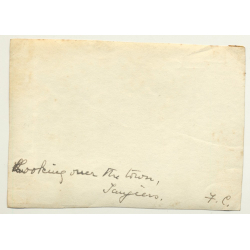 Looking over the town,
Tangiers. F. C.